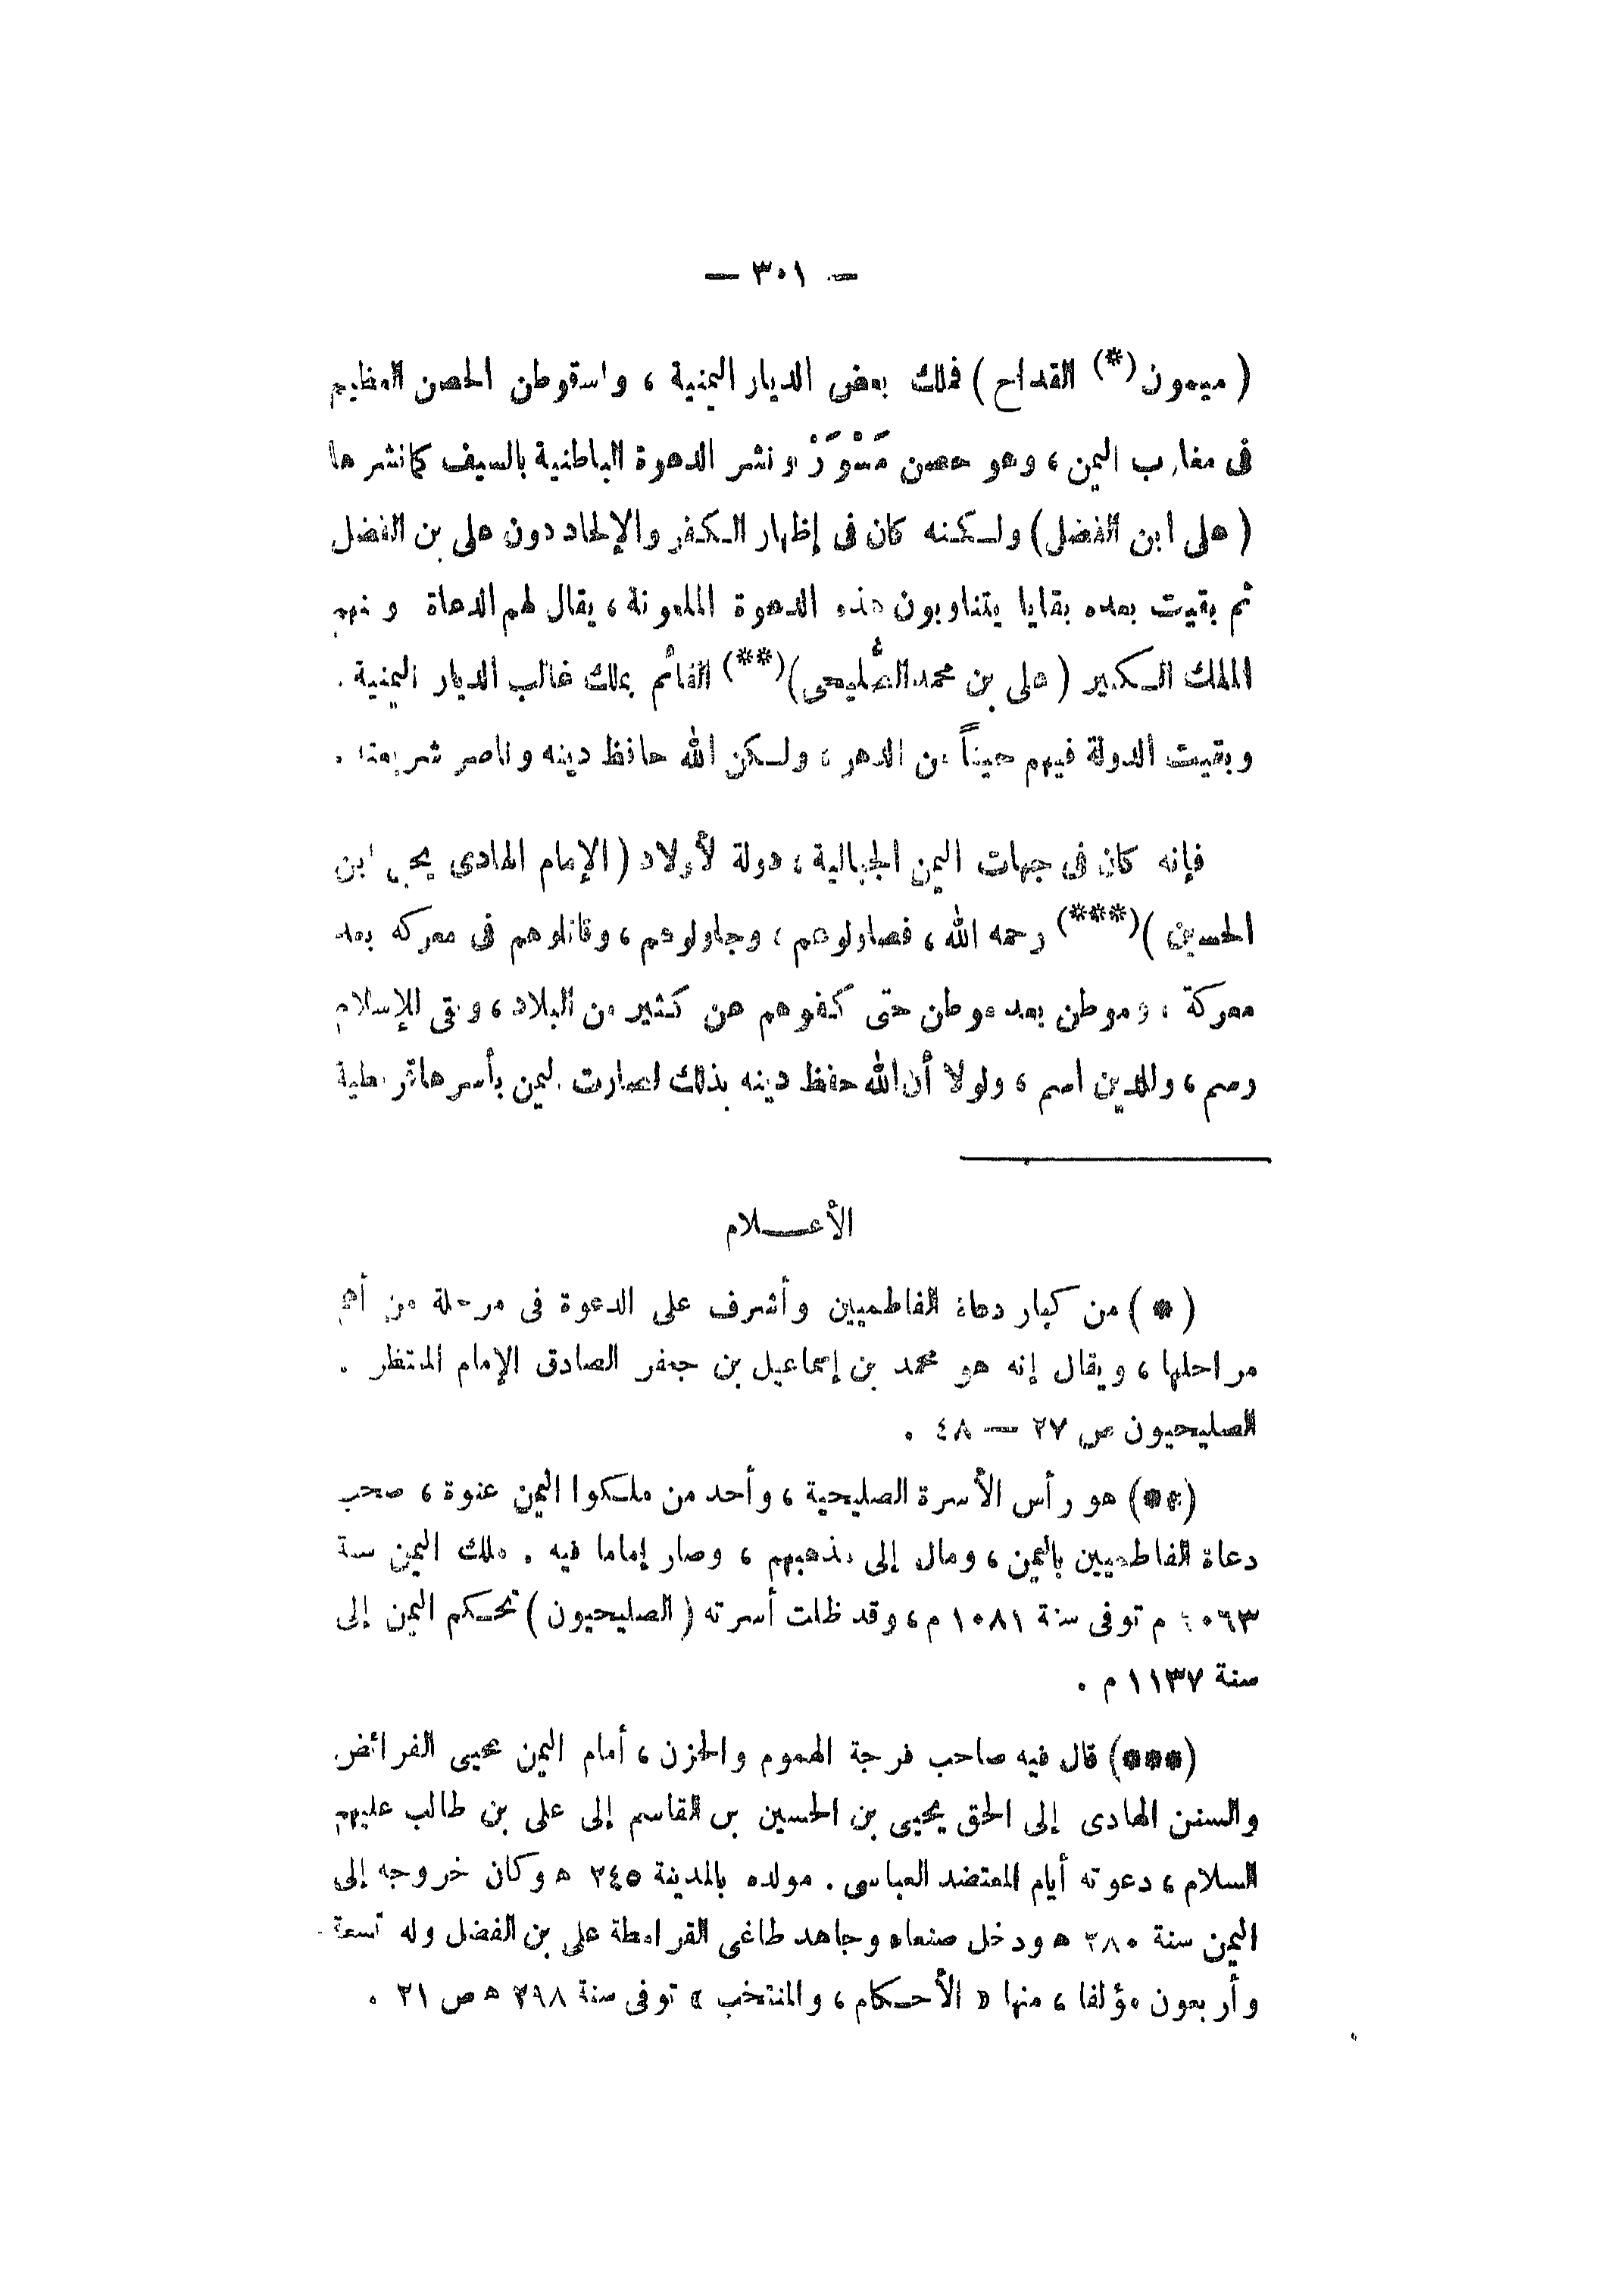 — ٣٠١ —
( ميمون(*) القداح ) فملك بعض الديار اليمنية ، واستوطن الحصن العظيم
فى مغارب اليمن ، وهو حصن مَسْوَرْ ونشر الدعوة الباطنية بالسيف كما نشرها
( على ابن الفضل ) ولكنه كان فى إظهار الكفر والإلحاد دون على بن الفضل
ثم بقيت بعده بقايا يتناوبون هذه الدعوة الملعونة ، يقال لهم الدعاة ومنهم
الملك الكبير ( على بن محمد الصُّليحى )(**) القائم بملك غالب الديار اليمنية .
وبقيت الدولة فيهم حيناً من الدهر ، ولكن الله حافظ دينه وناصر شريعته .
فإنه كان فى جهات اليمن الجبالية ، دولة لأولاد ( الإمام الهادى يحيى ابن
الحسين )(***) رحمه الله ، فصاولوهم ، وجاولوهم ، وقاتلوهم فى معركه بعد
معركة ، وموطن بعد موطن حتى كفوهم عن كثير من البلاد ، وبقى للإسلام
رسم ، وللدين اسم ، ولولا أن الله حفظ دينه بذلك لصارت اليمن بأسرها قرمطية
الأعـــلام
( * ) من كبار دعاة الفاطميين وأشرف على الدعوة فى مرحلة من أهم
مراحلها ، ويقال إنه هو محمد بن إسماعيل بن جعفر الصادق الإمام المنتظر .
الصليحيون ص ٢٧ — ٤٨ .
(**) هو رأس الأسرة الصليحية ، وأحد من ملكوا اليمن عنوة ، صحب
دعاة الفاطميين باليمن ، ومال إلى مذهبهم ، وصار إماما فيه . ملك اليمن سنة
١٠٦٣ م توفى سنة ١٠٨١ م ، وقد ظلت أسرته ( الصليحيون ) تحكم اليمن إلى
سنة ١١٣٧ م .
(***) قال فيه صاحب فرجة الهموم والحزن ، أمام اليمن محيى الفرائض
والسنن الهادى إلى الحق يحيى بن الحسين بن القاسم إلى على بن طالب عليهم
السلام ، دعوته أيام المعتضد العباسى . مولده بالمدينة ٢٤٥ ه وكان خروجه إلى
اليمن سنة ٢٨٠ ه ودخل صنعاء وجاهد طاغى القرامطة على بن الفضل وله تسعة
وأربعون مؤلفا ، منها « الأحكام ، والمنتخب » توفى سنة ٢٩٨ ه ص ٢١ .